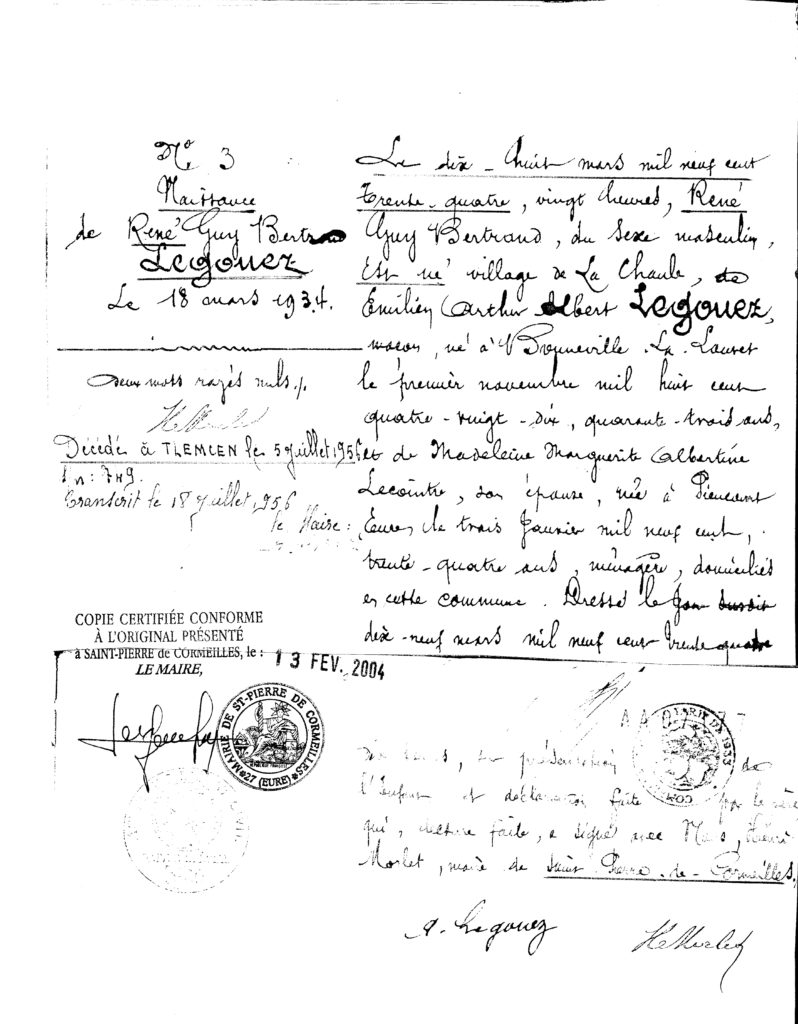 N° 3
Naissance
de René Guy Bertrand
Legouez
Le 18 mars 1934.
Deux mots rayés nuls ./.
Décédé à TLEMCEN le 5 juillet 1956
n: 749.
Transcrit le 18 juillet 1956
le Maire:
COPIE CERTIFIÉE CONFORME
À L'ORIGINAL PRÉSENTÉ
à SAINT-PIERRE de CORMEILLES, le :
13 FEV. 2004
LE MAIRE,
MAIRIE DE ST-PIERRE DE CORMEILLES
27 (EURE)
Le dix-huit mars mil neuf cent
trente-quatre, vingt heures, René
Guy Bertrand, du sexe masculin,
Est né village de La Chaule, de
Emilien Arthur Albert Legouez,
maçon, né à Bonneville-La-Louvet
le premier novembre mil huit cent
quatre-vingt-dix, quarante-trois ans,
et de Madeleine Marguerite Albertine
Lecointre, son épouse, née à Piencourt
Eure, le trois Janvier mil neuf cent,
trente-quatre ans, ménagère, domiciliés
en cette commune. Dressé le
dix-neuf mars mil neuf cent trente quatre
heures, sur présentation de
l'Enfant et déclaration faite par le père
qui, lecture faite, a signé avec Nous, Henri
Morlet, maire de Saint-Pierre-de-Cormeilles,
A. Legouez
H. Morlet